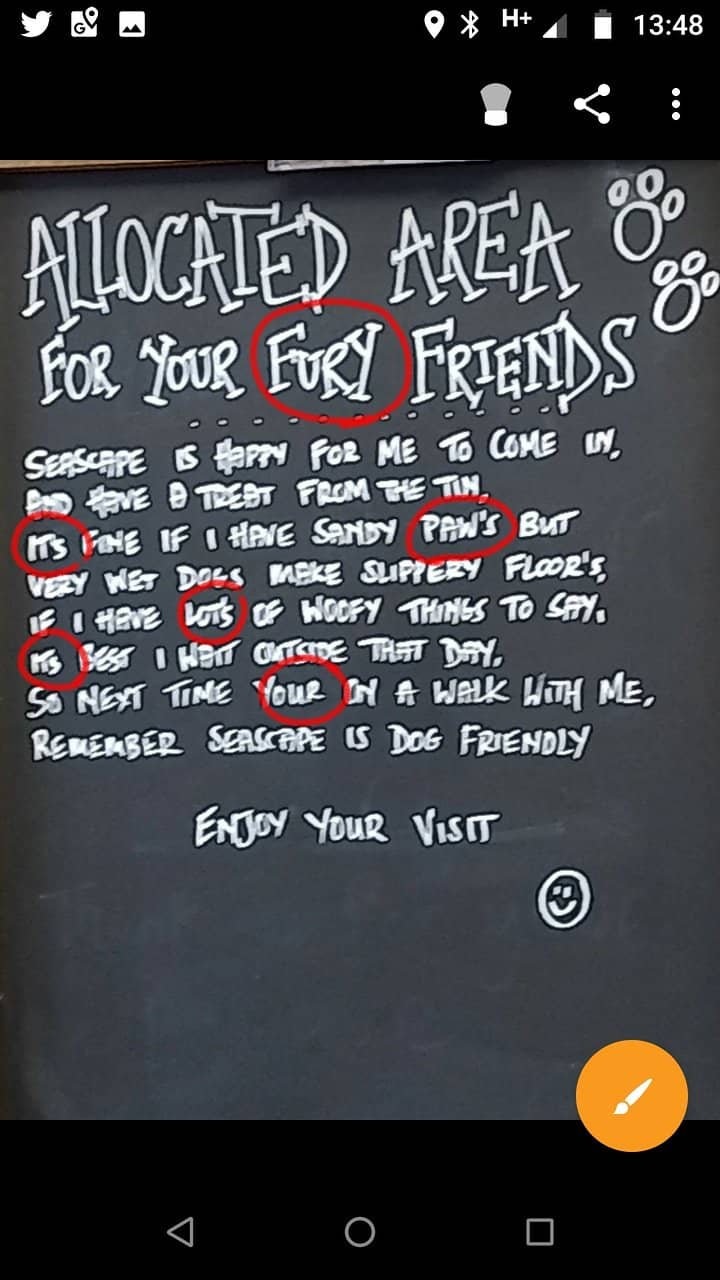 H+ 13:48
ALLOCATED AREA
FOR YOUR FURY FRIENDS
SEASCAPE IS HAPPY FOR ME TO COME IN,
AND HAVE A TREAT FROM THE TIN,
IT'S FINE IF I HAVE SANDY PAW'S BUT
VERY WET DOGS MAKE SLIPPERY FLOOR'S,
IF I HAVE LOTS OF WOOFY THINGS TO SAY,
ITS BEST I WAIT OUTSIDE THAT DAY,
SO NEXT TIME YOUR ON A WALK WITH ME,
REMEMBER SEASCAPE IS DOG FRIENDLY
ENJOY YOUR VISIT